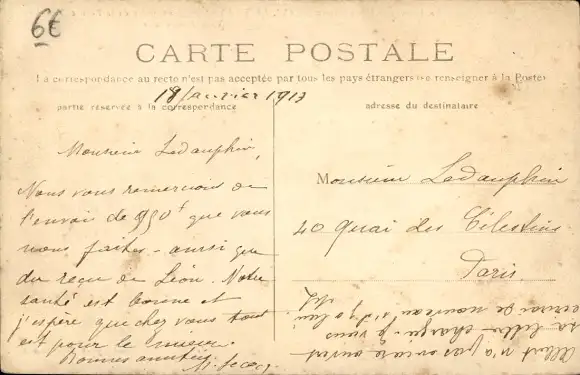 6€
CARTE POSTALE
La correspondance au recto n'est pas acceptée par tous les pays étrangers (se renseigner à la Poste)
18 Janvier 1913
partie réservée à la correspondance
adresse du destinataire
Monsieur Ledauphin,
Nous vous remercions de
l'envoi de 950f que vous
nous faites - ainsi que
du reçu de Léon. Notre
santé est bonne et
j'espère que chez vous tout
est pour le mieux.
Bonnes amitiés
Monsieur Ledauphin
40 Quai des Célestins
Paris
Albert n'a pas encore ouvert
sa lettre chargée - je vous
écrirai de nouveau s'il y a lieu